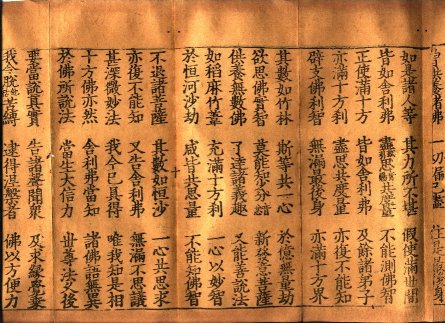 一切漏已盡
如是諸人等 其力所不堪 假使滿世間
皆如舍利弗 盡思共度量 不能測佛智
正使滿十方 皆如舍利弗 及餘諸弟子
亦滿十方刹 盡思共度量 亦復不能知
辟支佛利智 無漏最後身 亦滿十方界
其數如竹林 斯等共一心 於億無量劫
欲思佛實智 莫能知少分 新發意菩薩
供養無數佛 了達諸義趣 又能善說法
如稻麻竹葦 充滿十方刹 一心以妙智
於恒河沙劫 咸皆共思量 不能知佛智
不退諸菩薩 其數如恒沙 一心共思求
亦復不能知 又告舍利弗 無漏不思議
甚深微妙法 我今已具得 唯我知是相
十方佛亦然 舍利弗當知 諸佛語無異
於佛所說法 當生大信力 世尊法久後
要當說真實 告諸聲聞衆 及求緣覺乘
我令脫苦縛 逮得涅槃者 佛以方便力